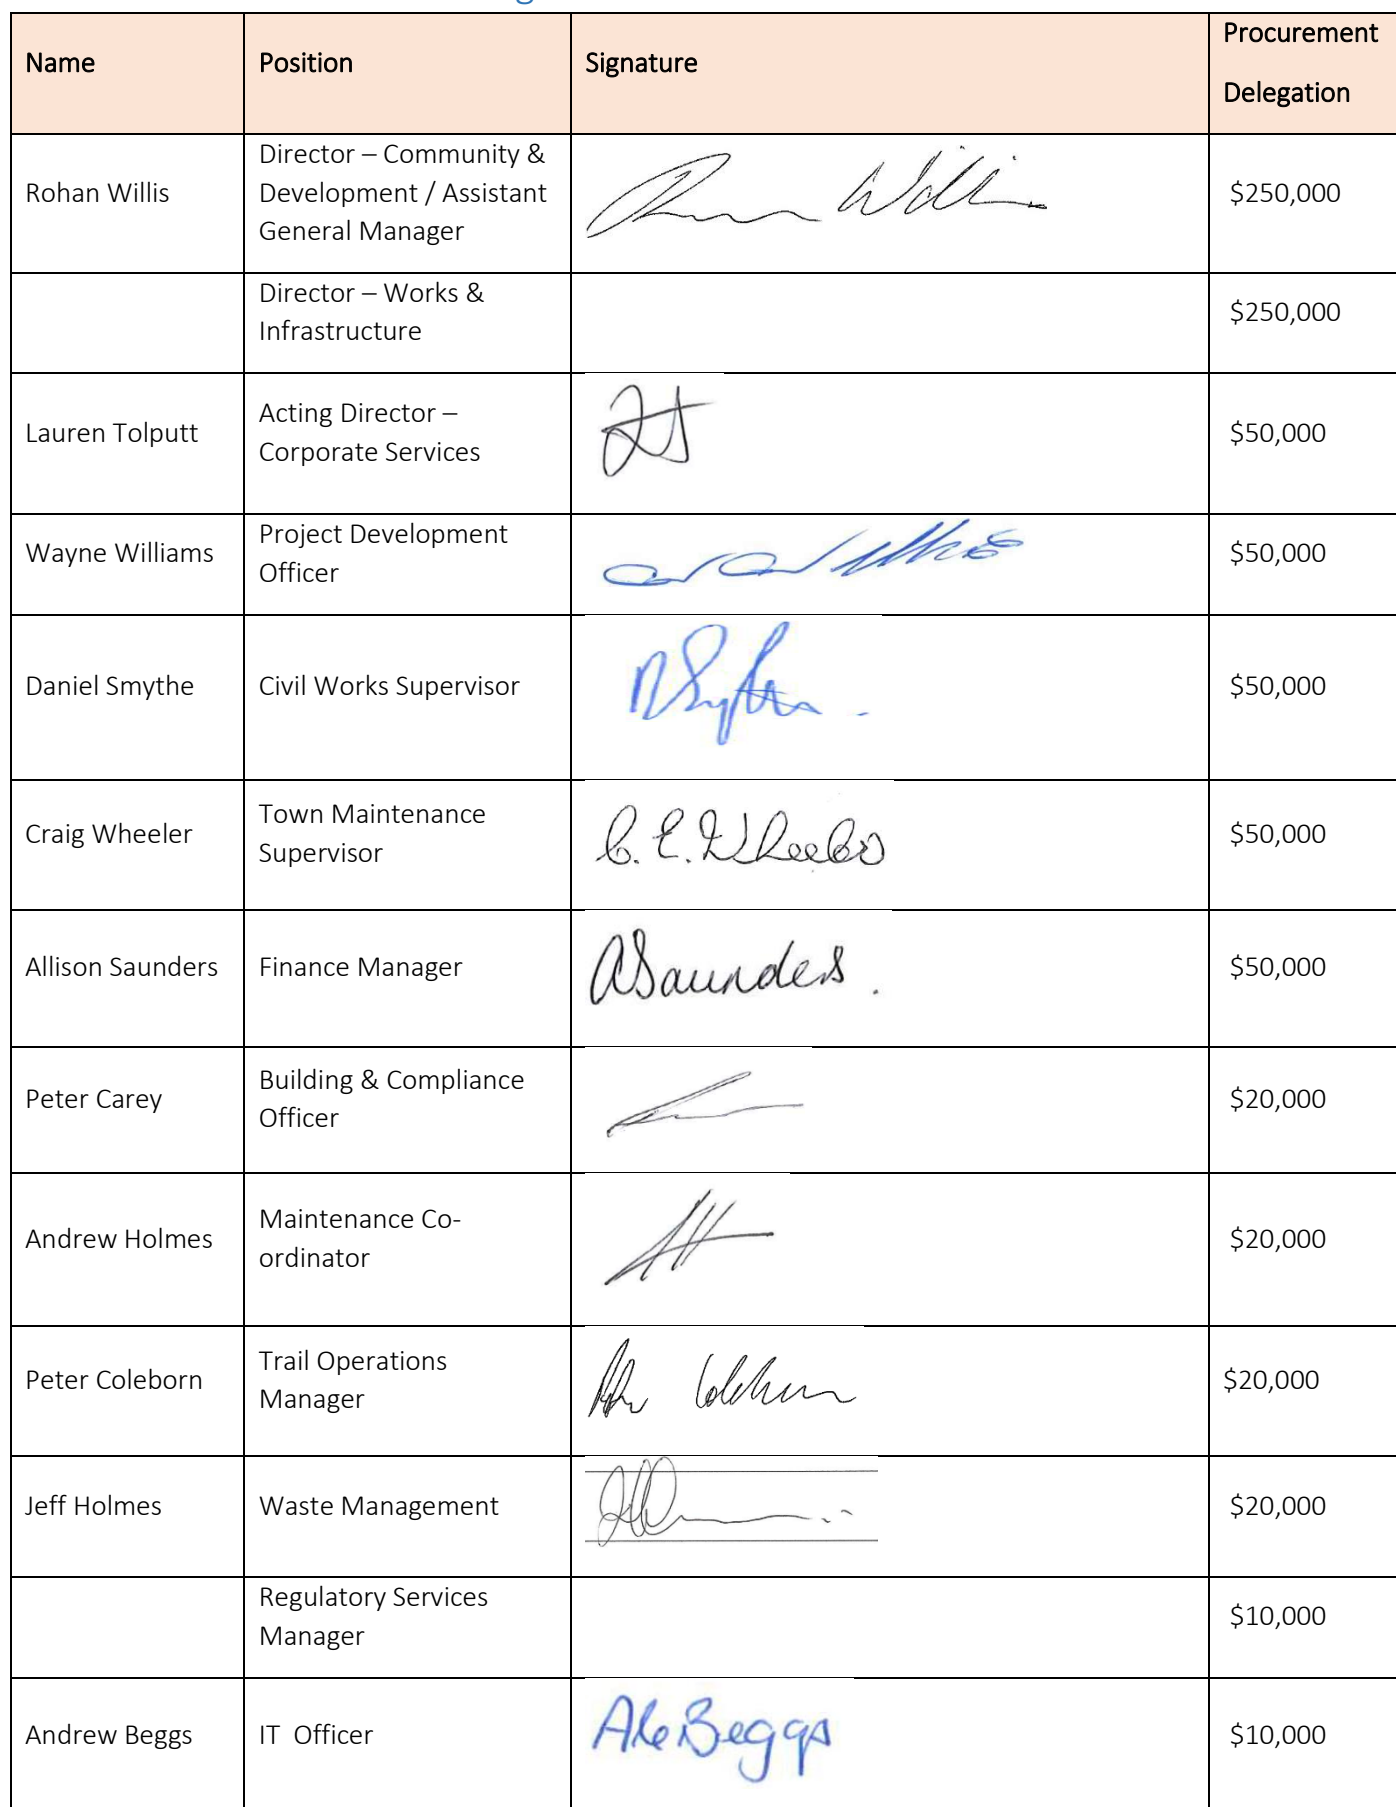 Name Position Signature Procurement
Delegation
Rohan Willis
Director – Community &
Development / Assistant
General Manager
$250,000
Director – Works &
Infrastructure
$250,000
Lauren Tolputt
Acting Director –
Corporate Services
$50,000
Wayne Williams
Project Development
Officer
$50,000
Daniel Smythe
Civil Works Supervisor
$50,000
Craig Wheeler
Town Maintenance
Supervisor
C.E.Wheeler
$50,000
Allison Saunders
Finance Manager
ASaunders.
$50,000
Peter Carey
Building & Compliance
Officer
$20,000
Andrew Holmes
Maintenance Co-
ordinator
$20,000
Peter Coleborn
Trail Operations
Manager
$20,000
Jeff Holmes
Waste Management
$20,000
Regulatory Services
Manager
$10,000
Andrew Beggs
IT  Officer
Beggs
$10,000